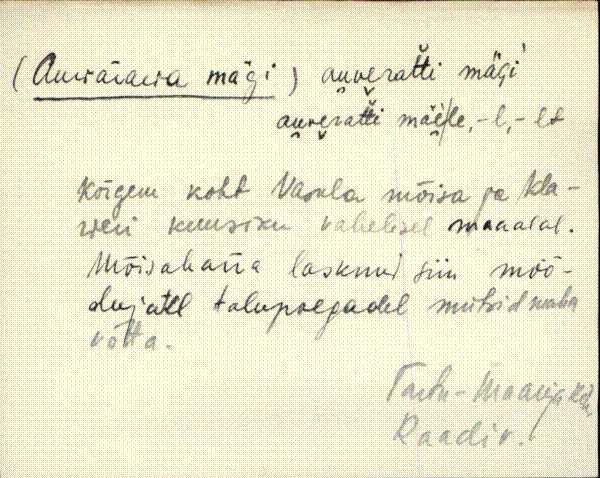 ( Auväravva mägi ) au̯ve̬ratt̆i mäg̀i
au̯ve̬ratt̆i mäe̯/le, -l, -lt
Kõigem koht Vasula mõisa ja Kla-
veri kuusiku vahelisel maaalal.
Mõisahärra lasknud siin möö-
dujatel talupoegadel mütsid maha
võtta.
Tartu-Maarja khk,
Raadi v.